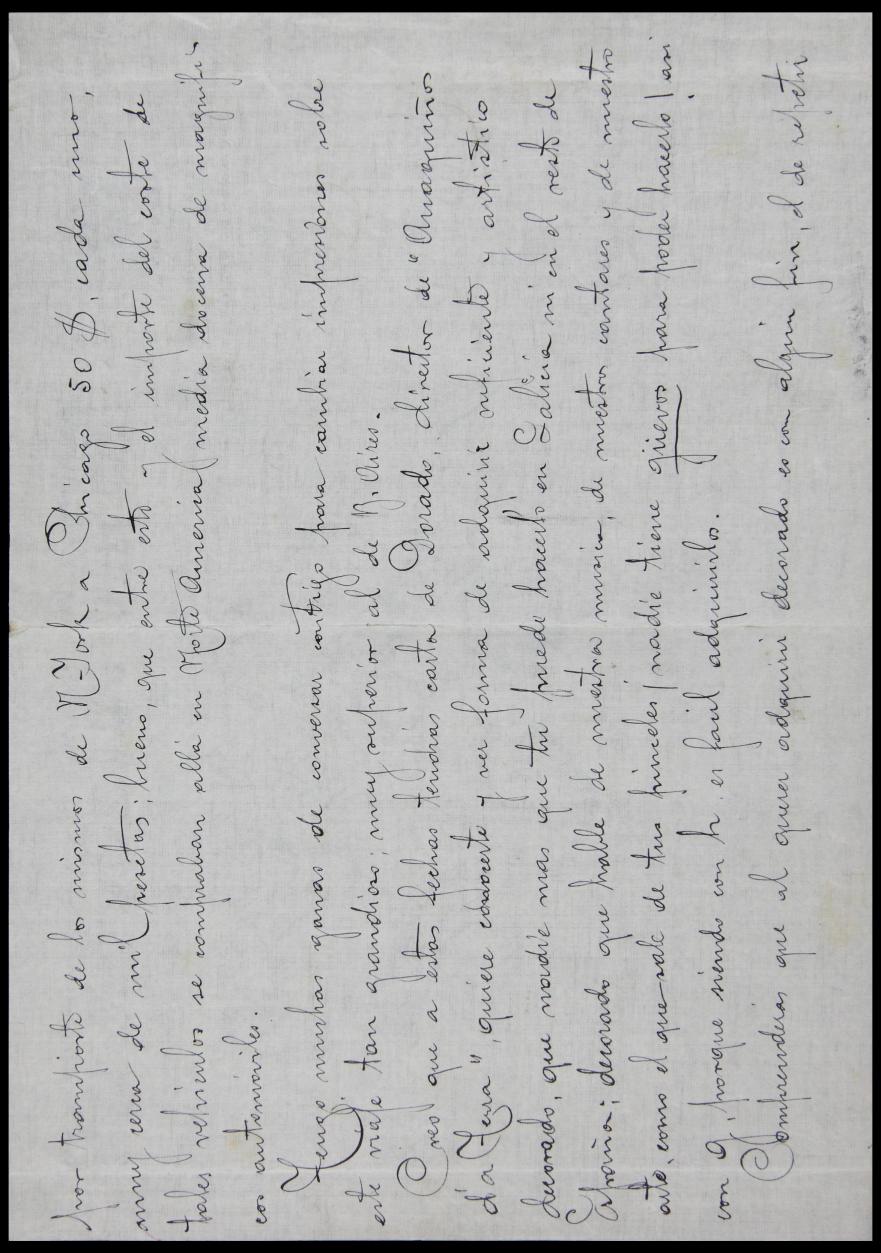 por transporte de los mismos de N-York a Chicago 50 $, cada uno,
muy cerca de mil pesetas; bueno, que entre esto y el importe del corte de
tales vehiculos se compraban allá en Norte America media docena de magnifi-
cos automóviles.
Tengo muchas ganas de conversar contigo para cambiar impresiones sobre
este viaje tan grandioso; muy superior al de B. Aires.
Creo que a estas fechas tendrás carta de Dorado, director de "Anaquiños
d'a Terra", quiere conocerte y ver forma de adquirir suficiente y artístico
decorado, que nadie mas que tu puede hacerlo en Galicia ni en el resto de
España; decorado que hable de nuestra musica, de nuestros cantares y de nuestro
arte, como el que sale de tus pinceles; nadie tiene güevos para poder hacerlo, asi
con g, porque siendo con h. es facil adquirirlos.
Comprenderás que al querer adquirir decorado es con algun fin, el de repetir